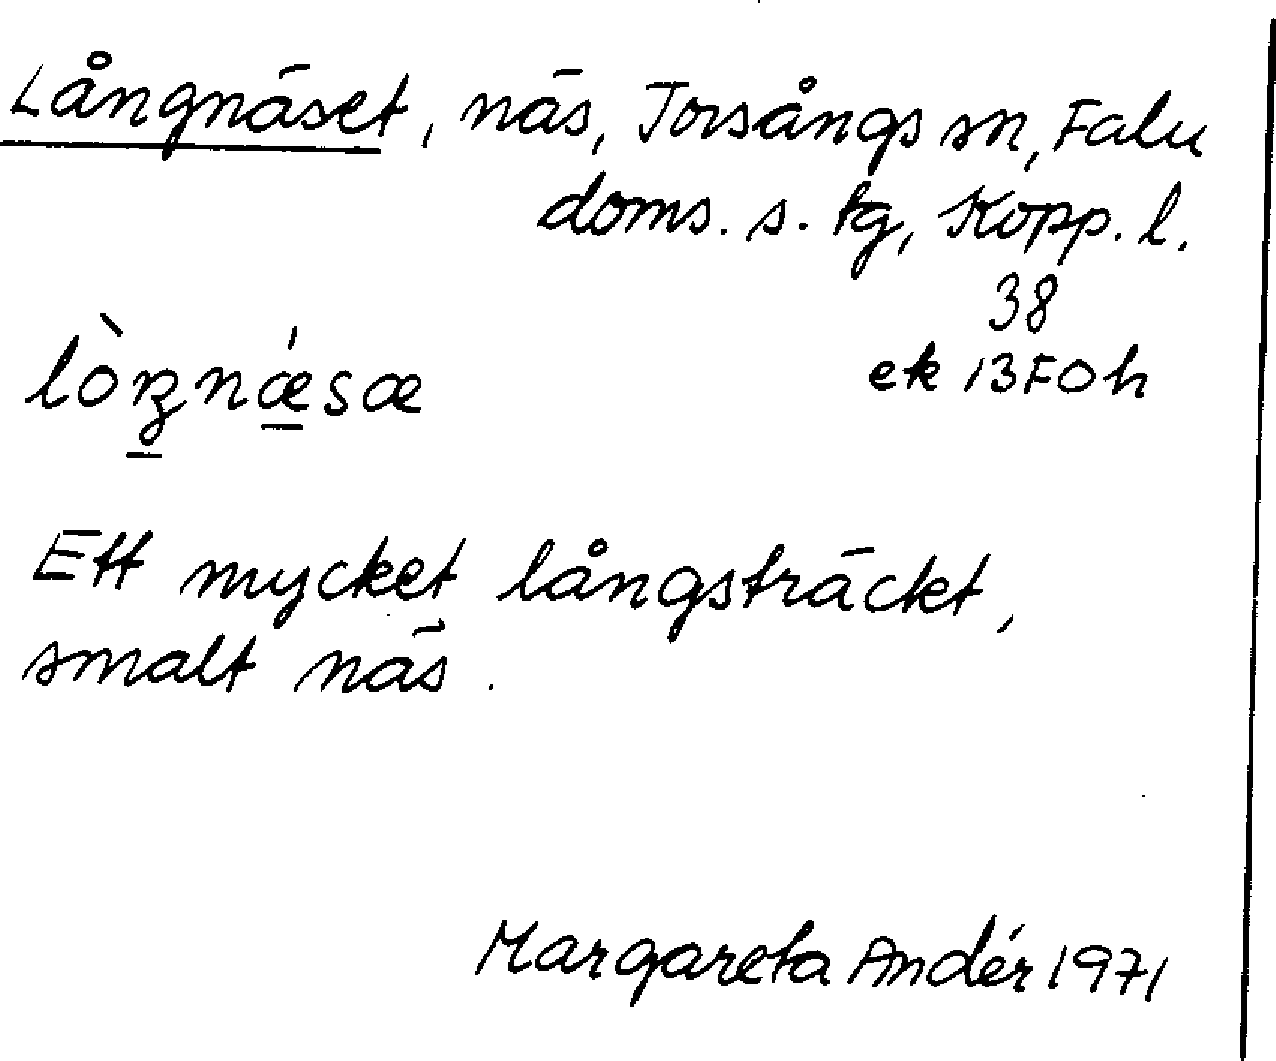 Långnäset, näs, Torsångs sn, Falu
doms. s. tg, Kopp. l.
38
ek 13F0h
Ett mycket långsträckt,
smalt näs.
Margareta Andér 1971